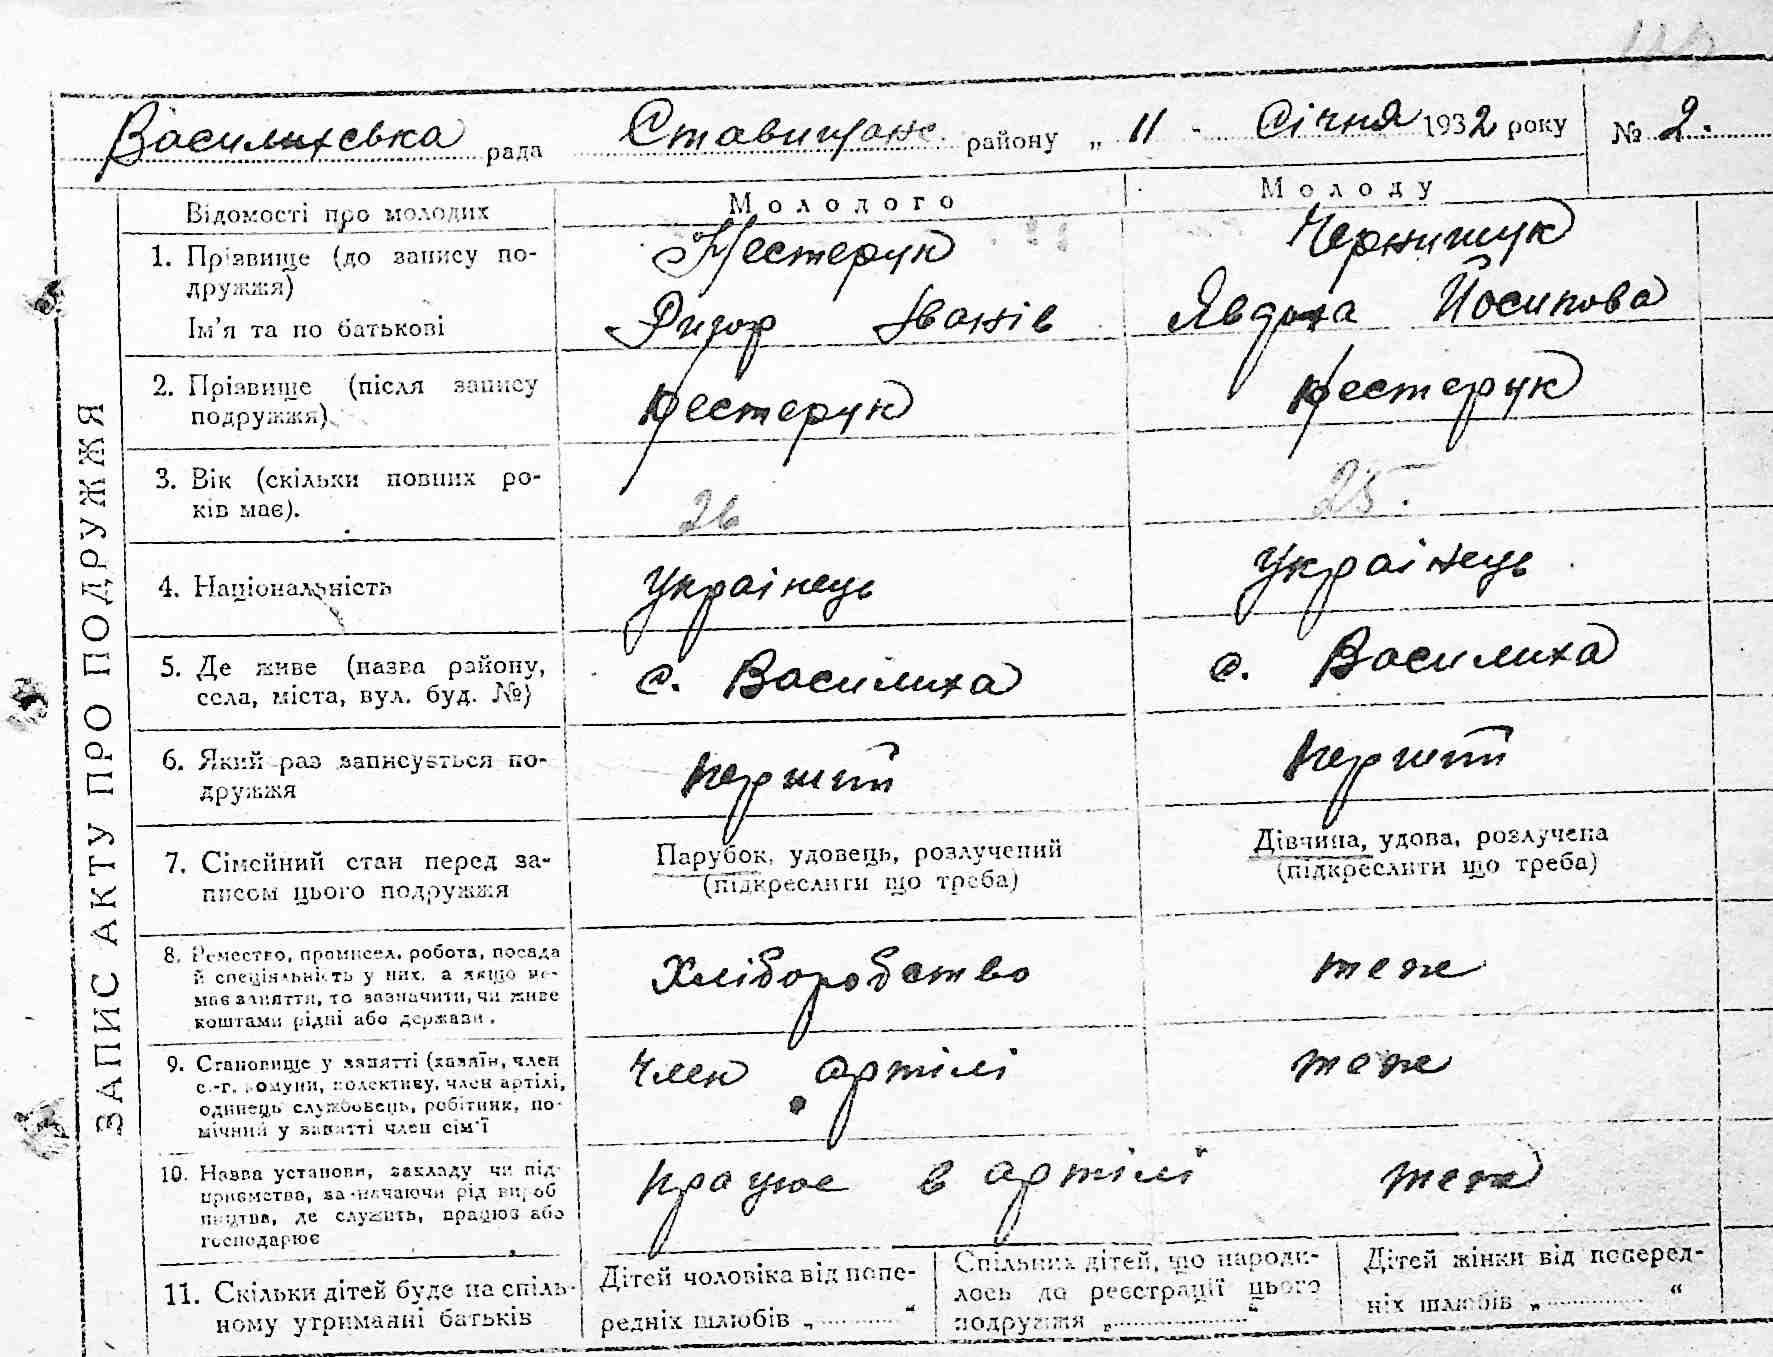 Василихська рада Ставищанс. району „ 11 - Січня 1932 року № 2.
ЗАПИС АКТУ ПРО ПОДРУЖЖЯ
Відомості про молодих
Молодого
Молоду
1. Прізвище (до запису по-
дружжя)
Нестерук
Чернишук
Ім'я та по батькові
Ригор Іванів
Явдоха Йосипова
2. Прізвище (після запису
подружжя)
Нестерук
Нестерук
3. Вік (скільки повних ро-
ків має).
26
25.
4. Національність
Українець
Українець
5. Де живе (назва району,
села, міста, вул. буд. №)
с. Василиха
с. Василиха
6. Який раз записується по-
дружжя
перший
перший
7. Сімейний стан перед за-
писом цього подружжя
Парубок, удовець, розлучений
(підкреслити що треба)
Дівчина, удова, розлучена
(підкреслити що треба)
8. Ремество, промисел, робота, посада
й спеціяльність у них, а якщо не-
має заняття, то зазначити, чи живе
коштами рідні або держави.
Хліборобство
теж
9. Становище у занятті (хазяїн, член
с.-г. комуни, колективу, член артілі,
одинець службовець, робітник, по-
мічний у занятті член сім'ї
Член артілі
теж
10. Назва установи, закладу чи під-
приємства, зазначаючи рід вироб
ництва, де служить, працює або
господарює
працює в артілі
теж
11. Скільки дітей буде на спіль-
ному утриманні батьків
Дітей чоловіка від попе-
редніх шлюбів „ “
Спільних дітей, що народи-
лось до реєстрації цього
подружжя „ “
Дітей жінки від поперед-
ніх шлюбів „ “